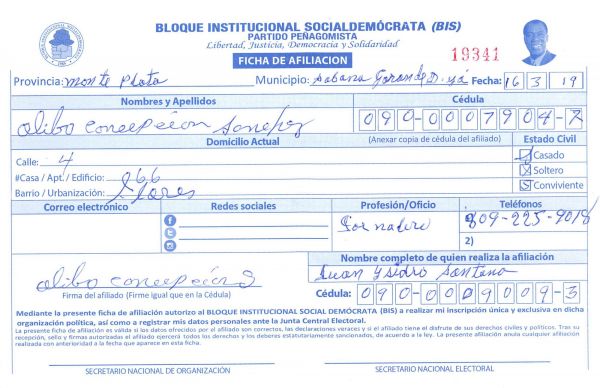 BLOQUE INSTITUCIONAL SOCIALDEMÓCRATA (BIS)
PARTIDO PEÑAGOMISTA
Libertad, Justicia, Democracia y Solidaridad
FICHA DE AFILIACION
19341
Provincia: Monte Plata Municipio: Sabana Grande D. yá Fecha: 16 3 19
Nombres y Apellidos Cédula
Olibo Concepcion 090-0007904-7
Domicilio Actual (Anexar copia de cédula del afiliado) Estado Civil
Calle: 4 Casado
#Casa / Apt. / Edificio: 266 Soltero
Barrio / Urbanización: Flores Conviviente
Correo electrónico Redes sociales Profesión/Oficio Teléfonos
809-225-9018
2)
Nombre completo de quien realiza la afiliación
Olibo Concepcion Juan Ysidro Santana
Firma del afiliado (Firme igual que en la Cédula) Cédula: 090-0009009-3
Mediante la presente ficha de afiliación autorizo al BLOQUE INSTITUCIONAL SOCIAL DEMÓCRATA (BIS) a realizar mi inscripción única y exclusiva en dicha
organización política, así como a registrar mis datos personales ante la Junta Central Electoral.
La presente ficha de afiliación es válida si los datos ofrecidos por el afiliado son correctos, las declaraciones veraces y si el afiliado tiene el disfrute de sus derechos civiles y políticos. Tras su
recepción, sello y firmas autorizadas el afiliado ejercerá todos los derechos y los deberes estatutariamente sancionados, de acuerdo a la ley. La presente afiliación anula cualquier afiliación
realizada con anterioridad a la fecha que aparece en esta ficha.
SECRETARIO NACIONAL DE ORGANIZACIÓN SECRETARIO NACIONAL ELECTORAL